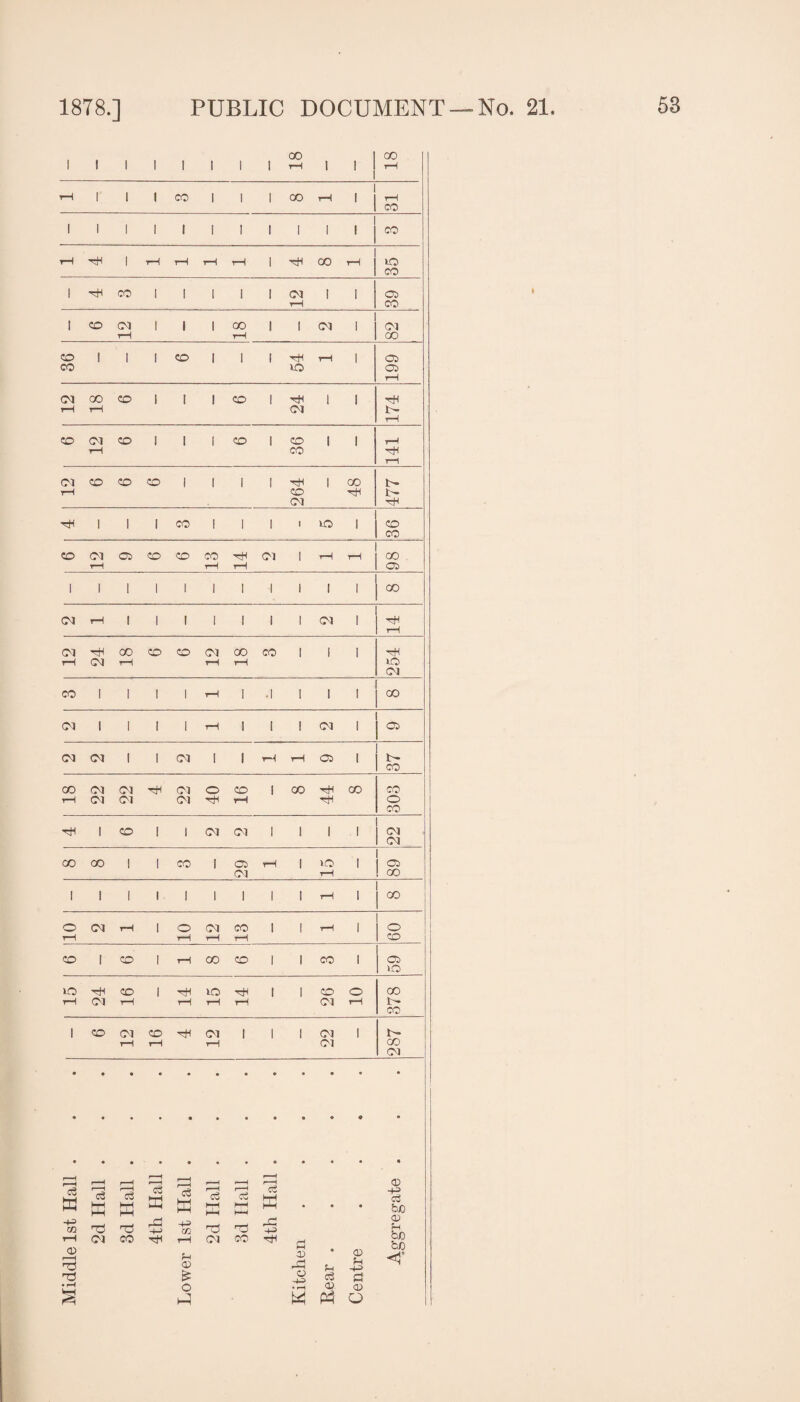 1878.] PUBLIC DOCUMENT — No. 21. 53
Middle 1st Hall . . . – 15 6 10 – 8 4 18 2 2 3 12 2 – 6 4 12 6 12 36 – – 1 – 1 –
2d Hall . . . 6 24 – 2 – 8 – 22 2 – – 24 1 – 12 – 6 12 18 – 6 4 4 – – –
3d Hall . . . 12 16 6 1 – – 6 22 – – – 18 – – 9 – 6 6 6 – 12 3 – – – –
4th Hall . . . 16 – – – – – – 4 – – – 6 – – 6 – 6 – – – – – 1 – – –
Lower 1st Hall . . . 4 14 1 10 – 3 – 22 2 – – 6 – – 6 3 – – – 6 – – 1 – 3 –
2d Hall . . . 12 15 8 12 – – 2 40 – 1 1 12 – – 13 – – – – – – – 1 – – –
3d Hall . . . – 14 6 13 – 29 2 16 – – – 18 – – 14 – – 6 6 – 18 – 1 – – –
4th Hall . . . – – – – – 1 – – 1 – – 3 – – 2 – – – – – – – – – – –
Kitchen . . . . – – – – – – – 8 1 – – – – – – – 264 36 24 54 – 12 4 – 8 18
Rear . . . . . 22 26 3 1 1 15 – 44 9 2 – – 2 – 1 5 – – – 1 2 – 8 – 1 –
Centre . . . . – 10 – – – – – 8 – – – – – – 1 – 48 – – – – – 1 – – –
Aggregate . . . 287 378 59 60 8 89 22 303 37 9 8 254 14 8 98 36 477 141 174 199 82 39 35 3 31 18